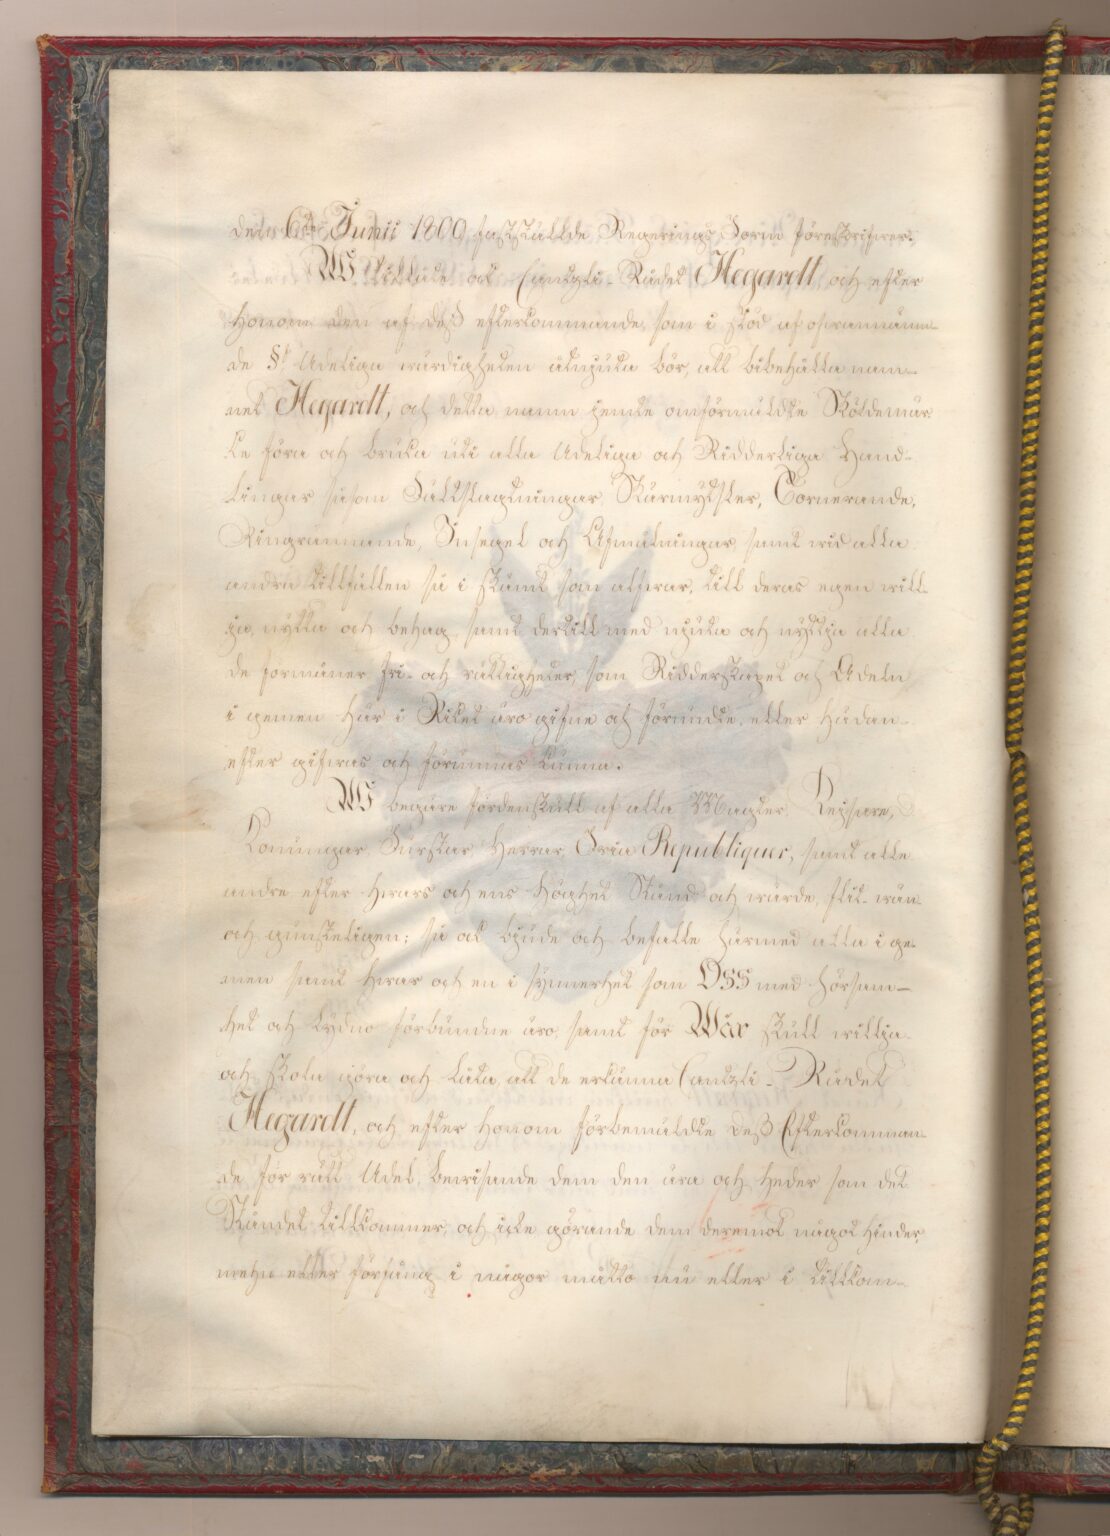 den 6te Junii 1809 fastställde Regerings Form föreskrifwer.
Wi tillåte ock Cantzli-Rådet Hegardt, och efter
honom den af dess efterkommande, som i stöd af ofwannämn-
de §, Adeliga wärdigheten åtnjuta bör, att bibehålla nam-
net Hegardt, och detta namn jemte omförmäldte Sköldemär-
ke föra och bruka uti alla Adeliga och Ridderliga Hand-
lingar såsom Fältslagtningar, Skärmytsler, Tornerande,
Ringrännande, Insegel och Afmålningar, samt wid alla
andra tillfällen så i skämt som alfwar, till deras egen wil-
ja, nytta och behag, samt dertill med njuta och nyttja alla
de förmåner fri- och rättigheter, som Ridderskapet och Adeln
i gemen här i Riket äro gifne och förunnte, eller hädan-
efter gifwas och förunnas kunna.
Wi begäre fördenskull af alla Magter, Kejsare,
Konungar, Furstar, Herrar, Fria Republiquer, samt alle
andre efter hwars och ens Höghet Stånd och wärde, flit- wän-
och gunsteligen; så ock bjude och befalle härmed alla i ge-
men samt hwar och en i synnerhet som OSS med hörsam-
het och lydno förbundne äro, samt för Wår skull willja
och skola göra och låta, att de erkänna Cantzli-Rådet
Hegardt, och efter honom förbemäldte dess Efterkomman-
de för rätt Adel, bewisande dem den ära och heder som det
Ståndet tillkommer, och icke görande dem deremot något hinder,
mehn eller förfång i någor måtto nu eller i tillkom-